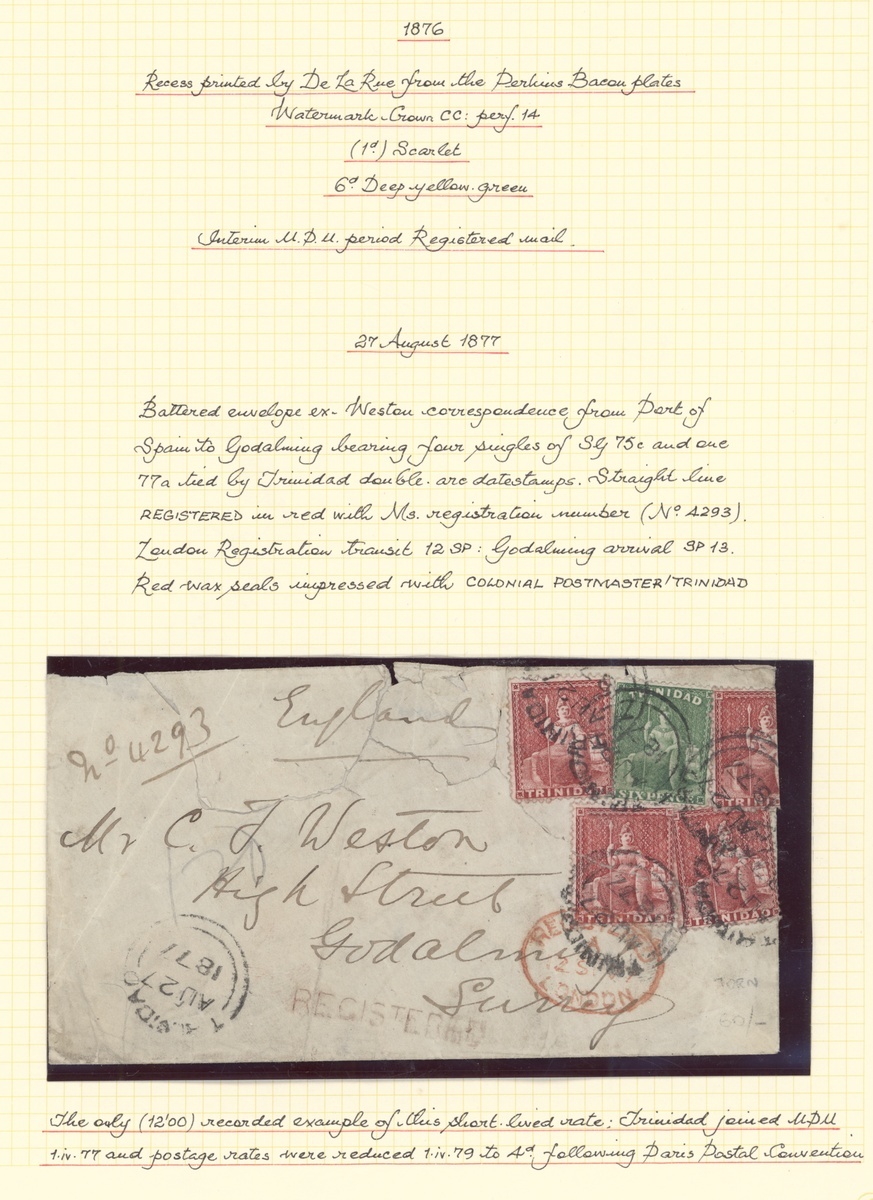 1876
Recess printed by De La Rue from the Perkins Bacon plates
Watermark Crown CC: perf. 14
(1d) Scarlet
6d Deep yellow-green
Interim U.P.U. period Registered mail.
27 August 1877
Battered envelope ex- Weston correspondence from Port of
Spain to Godalming bearing four singles of SG 75c and one
77a tied by Trinidad double-arc datestamps. Straight line
REGISTERED in red with Ms. registration number (No 4293).
London Registration transit 12 SP: Godalming arrival SP 13.
Red wax seals impressed with COLONIAL POSTMASTER/TRINIDAD
England
No 4293
TRINIDAD
SIX PENCE
TRINIDAD
TRINIDAD
TRINIDAD
Mr C. F. Weston
High Street
Godalming
Surrey
REGISTERED
LONDON
TRINIDAD
AU 27
1877
REGISTERED
TORN
60/-
The only (12'00) recorded example of this short-lived rate; Trinidad joined UPU
1.iv.77 and postage rates were reduced 1.iv.79 to 4d following Paris Postal Convention